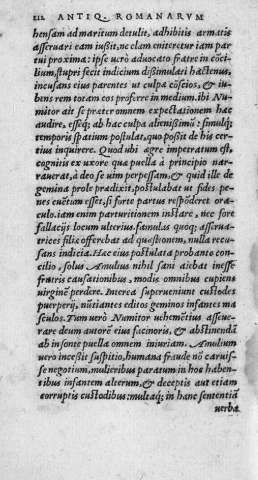 212 ANTIQ. ROMANARVM
hensam ad maritum detulit, adhibitis armatis
asseruari eam iussit, ne clam eniteretur iam par
tui proxima: ipse uerò aduocato fratre in cōci-
lium, stupri fecit indicium dißimulari hactenus,
incusans eius parentes ut culpæ cōscios, & iu-
bens rem totam eos proferre in medium. ibi Nu-
mitor ait se præter omnem expectationem hæc
audire, esseq; ab hac culpa alienißimū: simulq;
temporis spatium postulat, quo poßit de his cer-
tius inquirere. Quod ubi ægre impetratum est,
cognitis ex uxore quæ puella à principio nar-
rauerat, à deo se uim perpessam, & quid ille de
gemina prole prædixit, postulabat ut fides pe-
nes euētum esset, si forte partus respōderet ora-
culo. iam enim parturitionem instare, nec fore
fallacijs locum ulterius. famulas quoq; asserua-
trices filiæ offerebat ad quæstionem, nulla recu-
sans indicia. Hæc eius postulata probante con-
cilio, solus Amulius nihil sani aiebat inesse
fratris causationibus, modis omnibus cupiens
uirginē perdere. Interea superueniunt custodes
puerperij, nūtiantes editos geminos infantes ma
sculos. Tum uerò Numitor uehemētius asseue-
rare deum autorē eius facinoris, & abstinendā
ab insonte puella omnem iniuriam. Amulium
uero inceßit suspitio, humana fraude nō caruis-
se negotium, mulieribus paratum in hoc haben-
tibus infantem alterum, & deceptis aut etiam
corruptis custodibus: multaq; in hanc sententiā
uerba